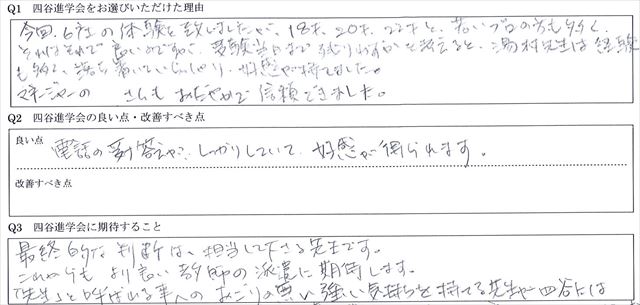 Q1 四谷進学会をお選びいただけた理由
今回、6社の体験を致しましたが、18才、20才、22才と、若いプロの方も多く、
それはそれで良いのですが、受験当日まで残りわずかと考えると、湯村先生は経験
も多く、落ち着いていらっしゃり、好感が持てました。
マネージャーの さんも おだやかで 信頼できました。
Q2 四谷進学会の良い点・改善すべき点
良い点
電話の受け答えが、しっかりしていて、好感が得られます。
改善すべき点
Q3 四谷進学会に期待すること
最終的な判断は、担当して下さる先生です。
これからも より良い教師の派遣に期待します。
「先生」と呼ばれる事へのおごりの無い強い気持ちを持てる先生が四谷には